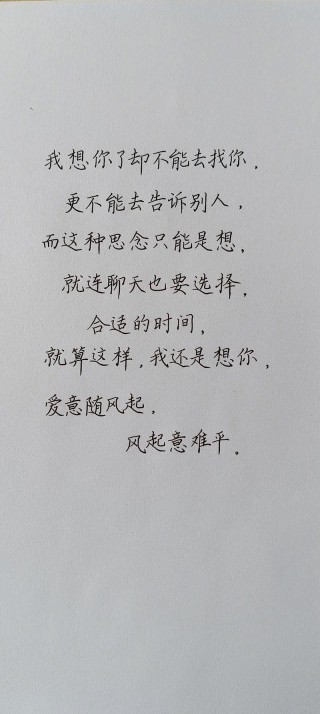 我想你了却不能去找你.
更不能去告诉别人,
而这种思念只能是想.
就连聊天也要选择.
合适的时间,
就算这样,我还是想你,
爱意随风起.
风起意难平.